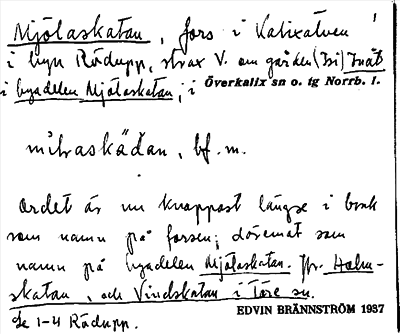 Mjölaskatan, fors i Kalixälven
i byn Rödupp, strax V. om gården (Bi) Tvät
i byadelen Mjölaskatan; i Överkalix sn o. tg Norrb. l.
mı̊ɫraskādan, bf. m.
Ordet är nu knappast längre i bruk
som namn på forsen; däremot som
namn på byadelen Mjölaskatan. Jfr. Holm-
skatan, och Vindskatan i Töre sn.
Se 1-4 Rödupp.
EDVIN BRÄNNSTRÖM 1937